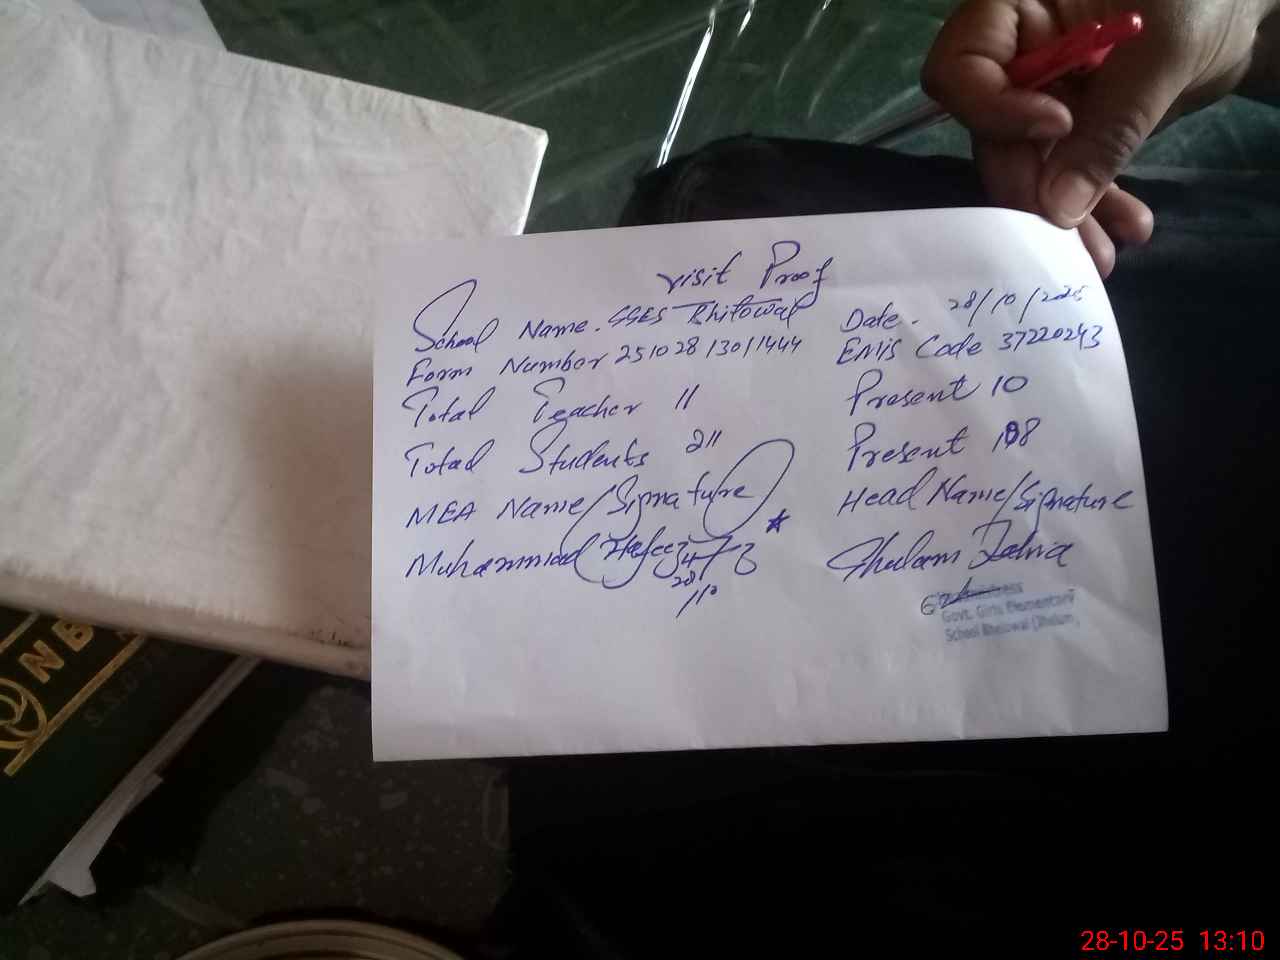 Visit Proof
School Name. GGES Bhilowal Date. 28/10/2025
Form Number 25102813011444 EMIS Code 37220243
Total Teacher 11 Present 10
Total Students 211 Present 198
MEA Name/Signature Head Name/Signature
Muhammad Hafeez 47 Ghulam Zahra
28
/10
Headmistress
Govt. Girls Elementary
School Bhelowal (Jhelum)
NB
28-10-25 13:10